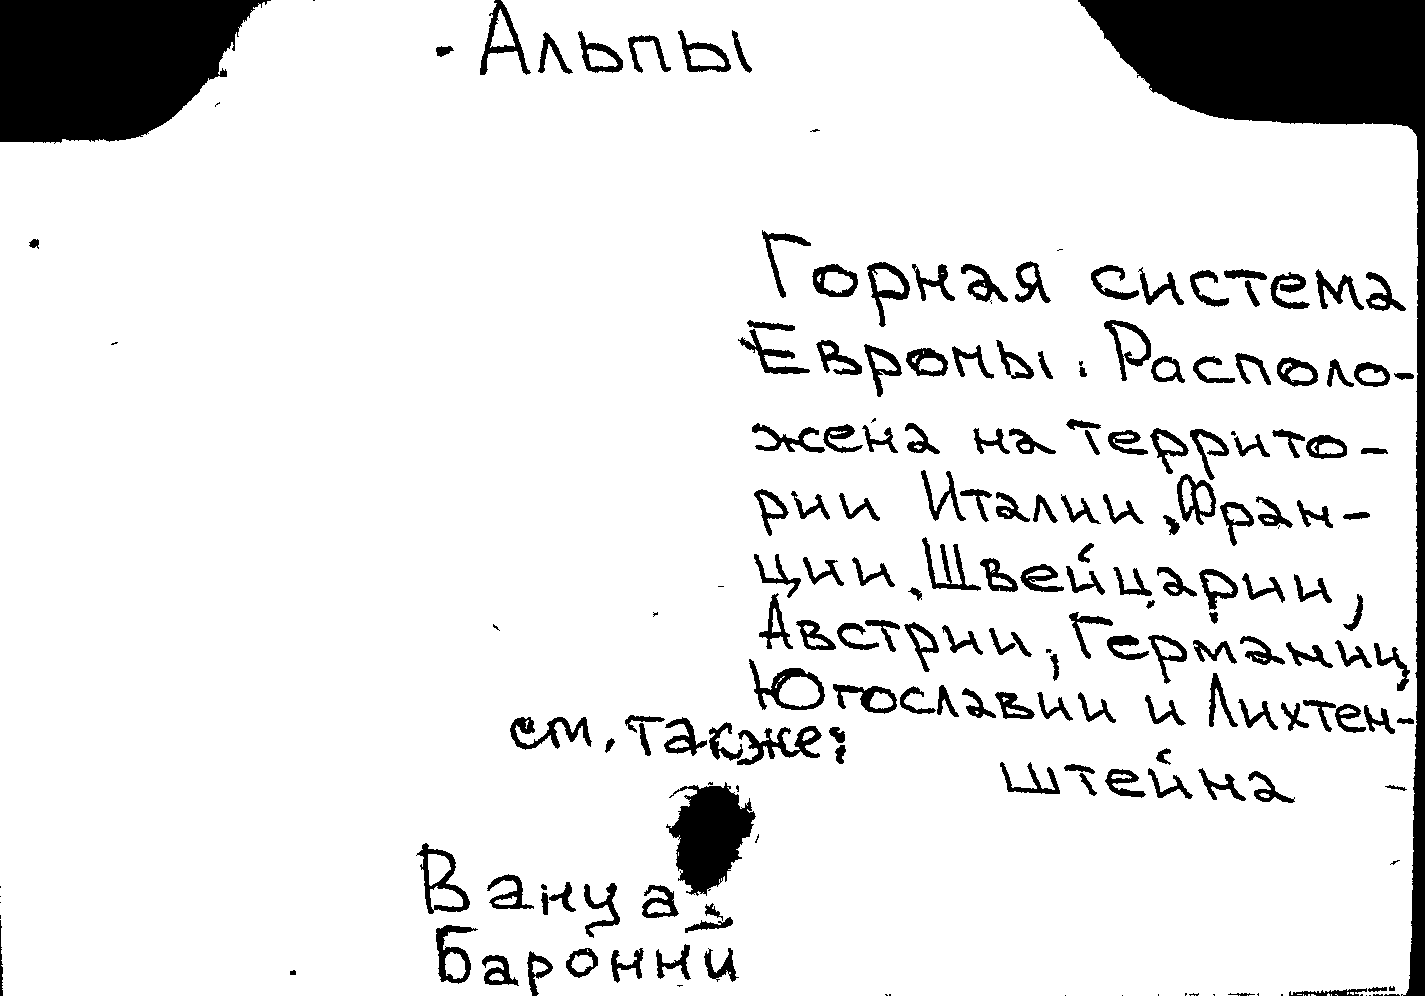 Альпы
Горная система
Европы. Располо-
жена на террито-
рии Италии, Фран-
ции, Швейцарии,
Австрии, Германии,
Югославии и Лихтен-
штейна
см. также:
Вануа
Баронни